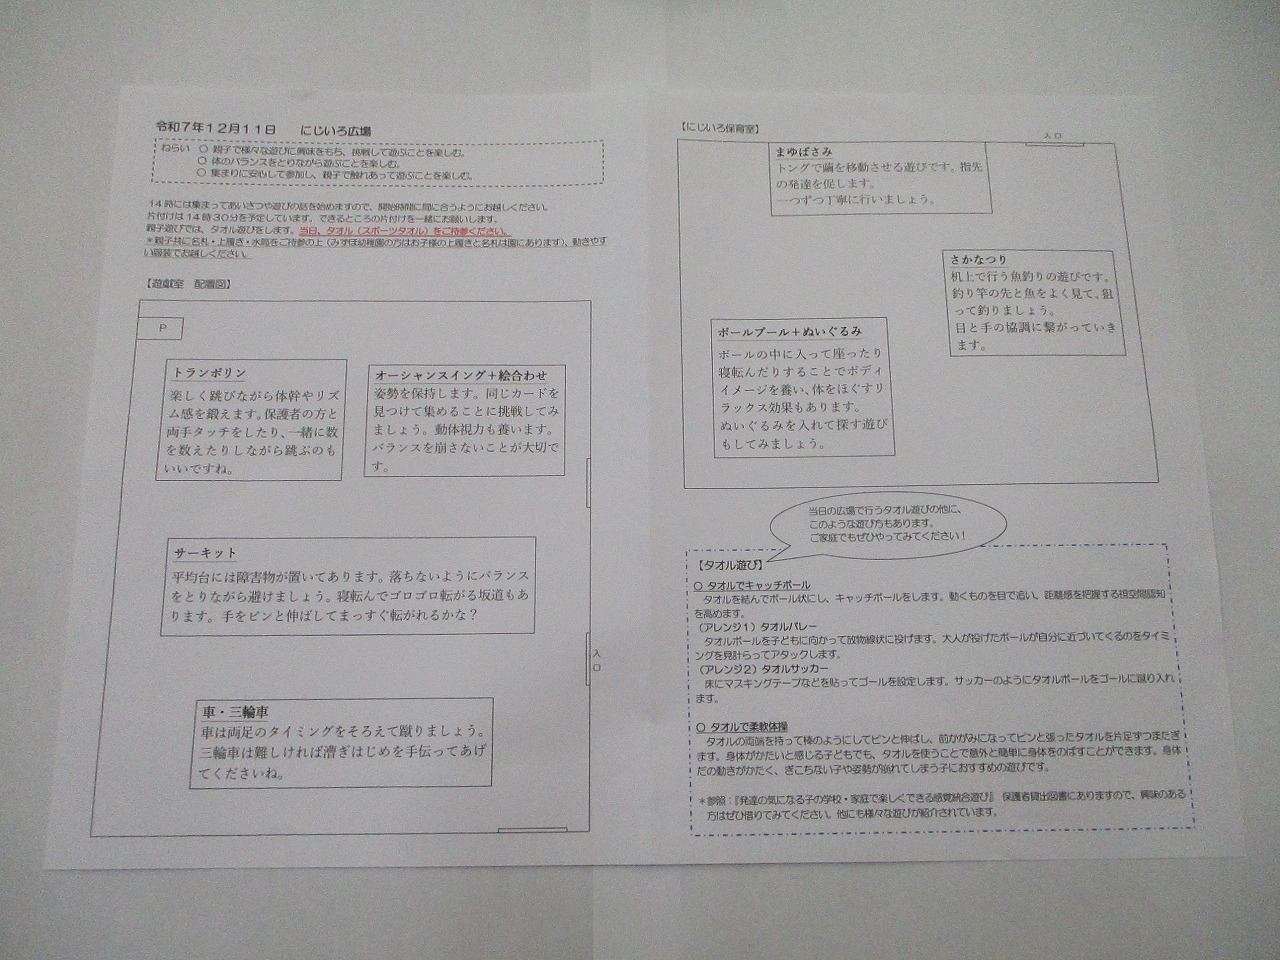 令和7年12月11日　にじいろ広場
ねらい　○ 親子で様々な遊びに興味をもち、挑戦して遊ぶことを楽しむ。
○ 体のバランスをとりながら遊ぶことを楽しむ。
○ 集まりに安心して参加し、親子で触れあって遊ぶことを楽しむ。
14時には集まってあいさつや遊びの話を始めますので、開始時間に間に合うようにお越しください。
片付けは14時30分を予定しています。できるところの片付けを一緒にお願いします。
親子遊びでは、タオル遊びをします。当日、タオル（スポーツタオル）をご持参ください。
＊親子共に名札・上履き・水筒をご持参の上（みずほ幼稚園の方はお子様の上履きと名札は園にあります）、動きやす
い服装でお越しください。
【遊戯室　配置図】
P
トランポリン
楽しく跳びながら体幹やリズ
ム感を鍛えます。保護者の方と
両手タッチをしたり、一緒に数
を数えたりしながら跳ぶのも
いいですね。
オーシャンスイング＋絵合わせ
姿勢を保持します。同じカードを
見つけて集めることに挑戦してみ
ましょう。動体視力も養います。
バランスを崩さないことが大切で
す。
サーキット
平均台には障害物が置いてあります。落ちないようにバランス
をとりながら避けましょう。寝転んでゴロゴロ転がる坂道もあ
ります。手をピンと伸ばしてまっすぐ転がれるかな？
入
口
車・三輪車
車は両足のタイミングをそろえて蹴りましょう。
三輪車は難しければ漕ぎはじめを手伝ってあげ
てくださいね。
【にじいろ保育室】
入口
まゆばさみ
トングで繭を移動させる遊びです。指先
の発達を促します。
一つずつ丁寧に行いましょう。
さかなつり
机上で行う魚釣りの遊びです。
釣り竿の先と魚をよく見て、狙
って釣りましょう。
目と手の協調に繋がっていき
ます。
ボールプール＋ぬいぐるみ
ボールの中に入って座ったり
寝転んだりすることでボディ
イメージを養い、体をほぐすリ
ラックス効果もあります。
ぬいぐるみを入れて探す遊び
もしてみましょう。
当日の広場で行うタオル遊びの他に、
このような遊び方もあります。
ご家庭でもぜひやってみてください！
【タオル遊び】
○ タオルでキャッチボール
タオルを結んでボール状にし、キャッチボールをします。動くものを目で追い、距離感を把握する視空間認知
を高めます。
（アレンジ1）タオルバレー
タオルボールを子どもに向かって放物線状に投げます。大人が投げたボールが自分に近づいてくるのをタイミ
ングを見計らってアタックします。
（アレンジ2）タオルサッカー
床にマスキングテープなどを貼ってゴールを設定します。サッカーのようにタオルボールをゴールに蹴り入れ
ます。
○ タオルで柔軟体操
タオルの両端を持って棒のようにしてピンと伸ばし、前かがみになってピンと張ったタオルを片足ずつまたぎ
ます。身体がかたいと感じる子どもでも、タオルを使うことで意外と簡単に身体をのばすことができます。身体
だの動きがかたく、ぎこちない子や姿勢が崩れてしまう子におすすめの遊びです。
＊参照：『発達の気になる子の学校・家庭で楽しくできる感覚統合遊び』 保護者貸出図書にありますので、興味のある
方はぜひ借りてみてください。他にも様々な遊びが紹介されています。